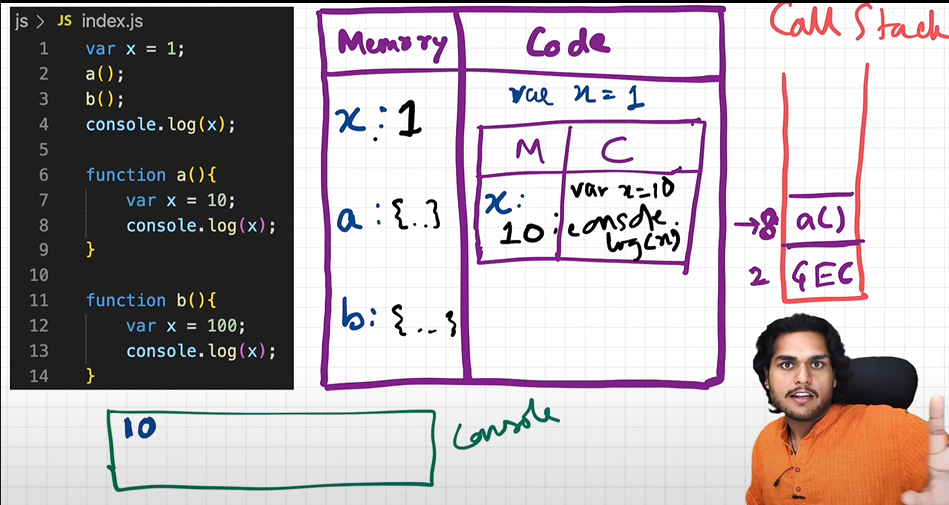 js > JS index.js
1 var x = 1;
2 a();
3 b();
4 console.log(x);
5
6 function a(){
7 var x = 10;
8 console.log(x);
9 }
10
11 function b(){
12 var x = 100;
13 console.log(x);
14 }
Memory Code
x: 1
var x = 1
M C
x: 10:
var x=10
console.
log(x)
a: {..}
b: {...}
Call Stack
→8 a()
2 GEC
10
Console